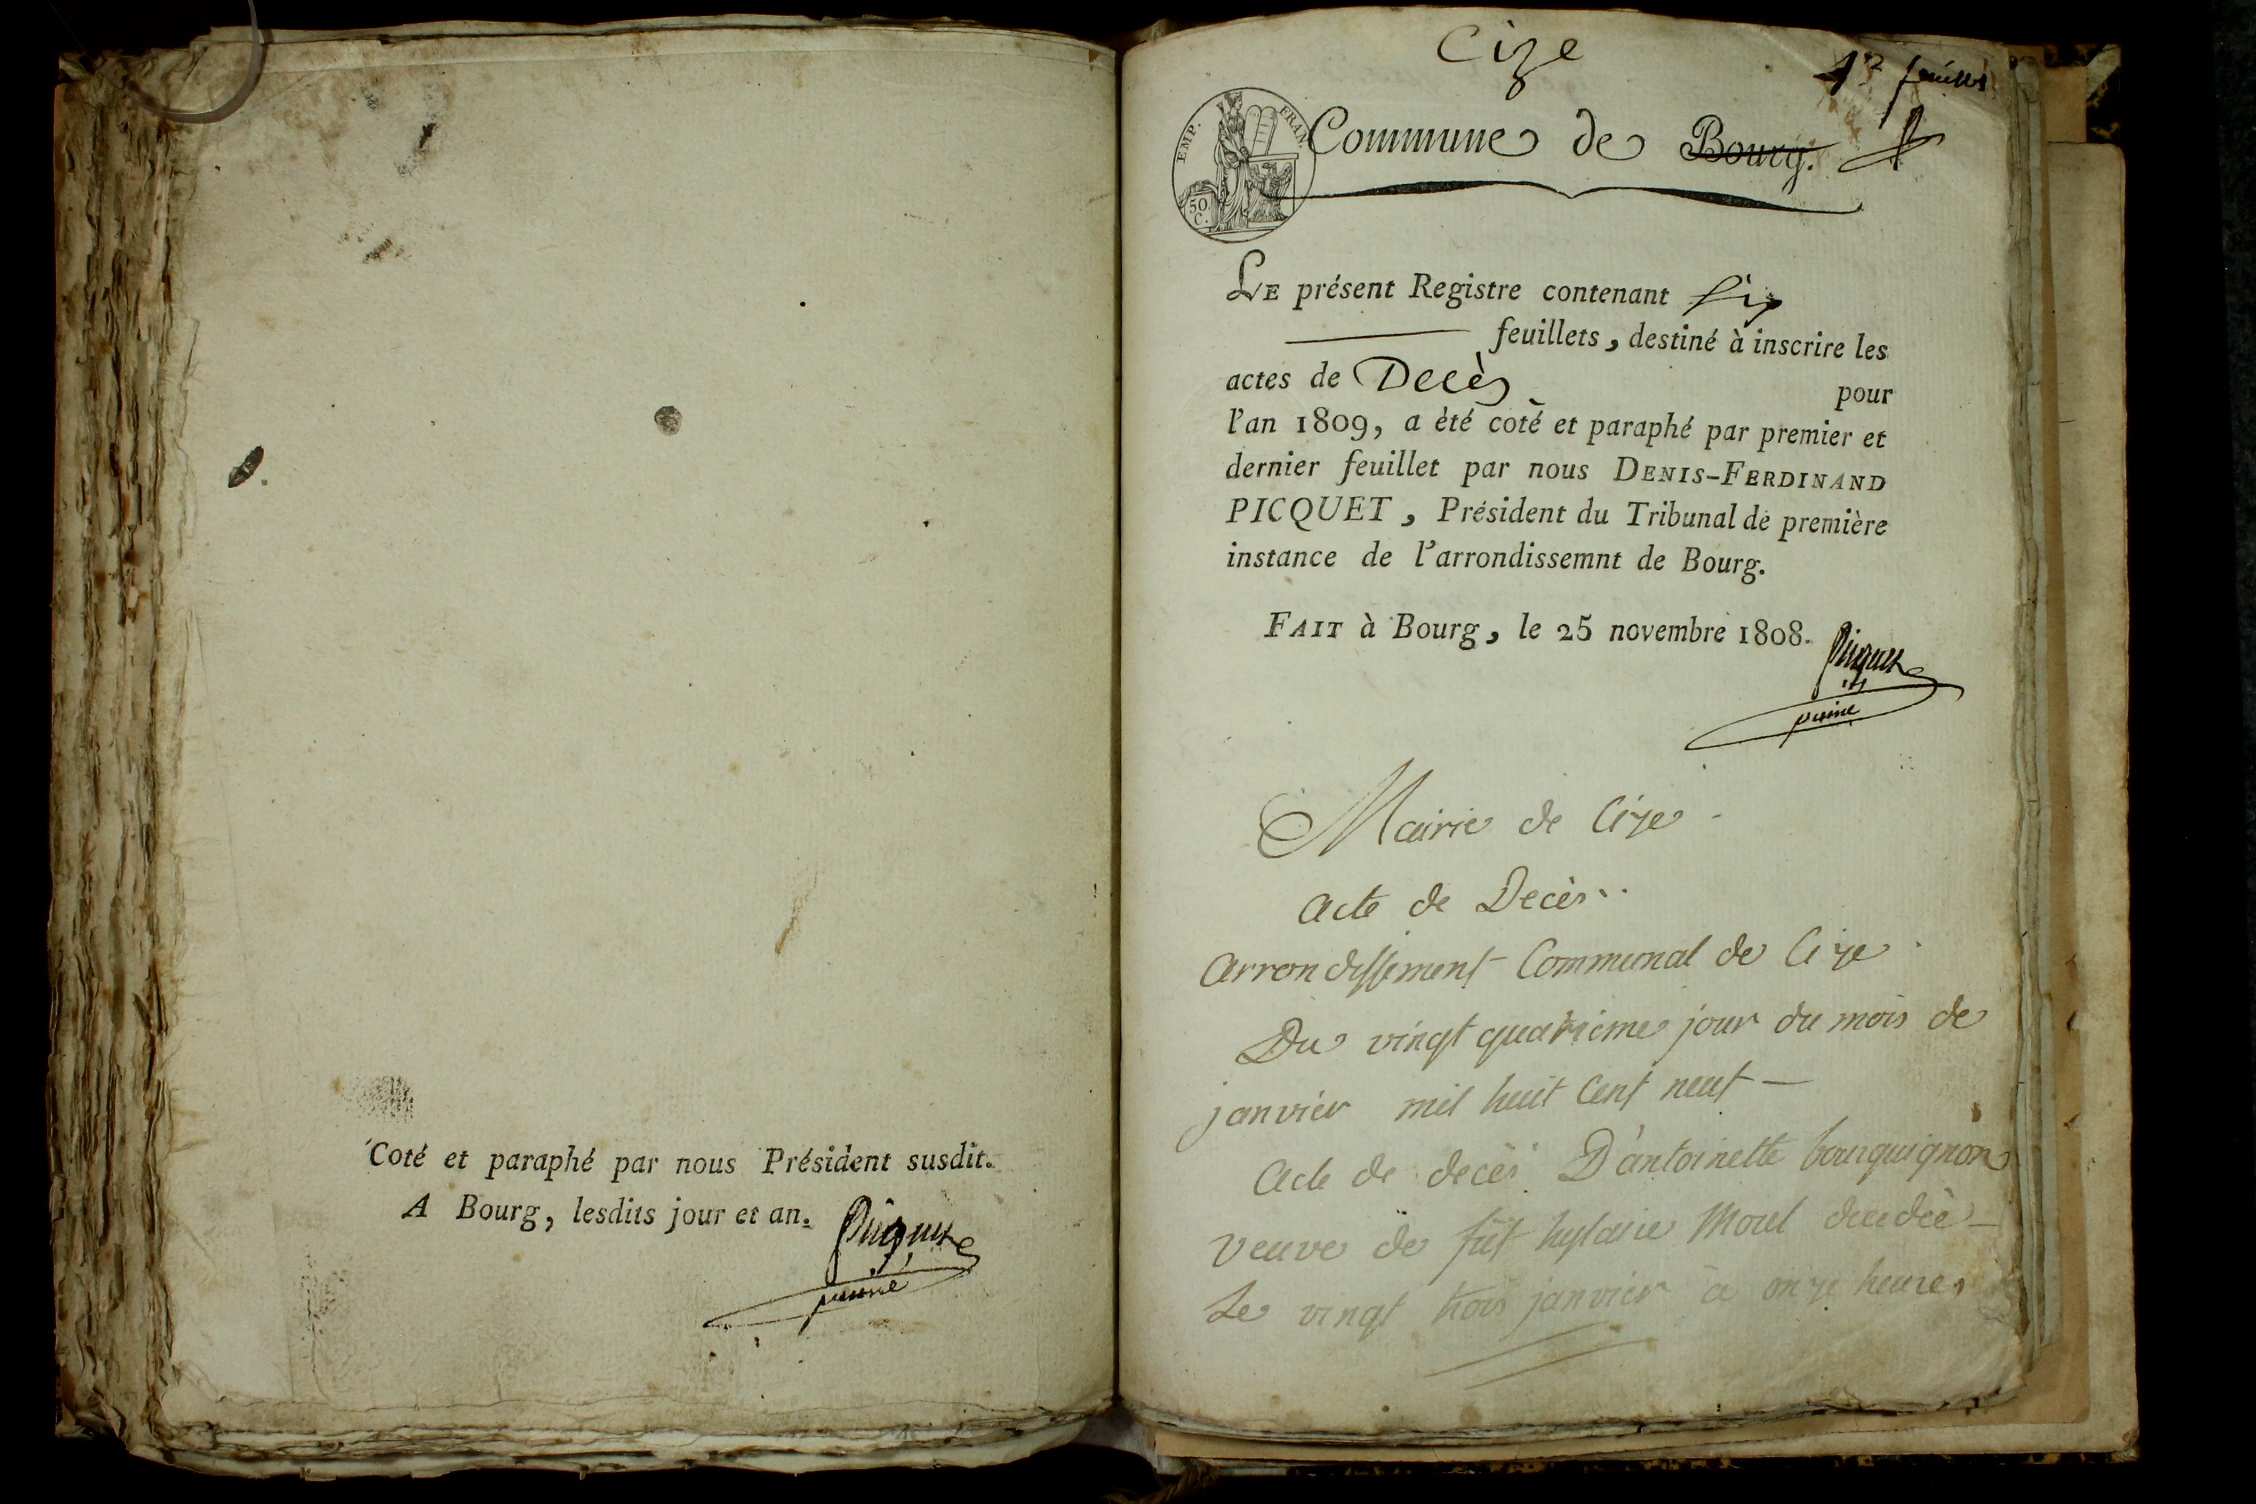 Coté et paraphé par nous Président susdit.
A Bourg, lesdits jour et an.
Picquet
Cize
1er feuillet
EMP. FRAN.
50 C.
Commune de Bourg.
LE présent Registre contenant six
feuillets, destiné à inscrire les
actes de Decès pour
l'an 1809, a été coté et paraphé par premier et
dernier feuillet par nous DENIS-FERDINAND
PICQUET, Président du Tribunal de première
instance de l'arrondissemnt de Bourg.
FAIT à Bourg, le 25 novembre 1808.
Picquet
Mairie de Cize
acte de Decès
arrondissement Communal de Cize
Du vingt quatrième jour du mois de
janvier mil huit Cent neuf
acte de decès D'antoinette bourguignon
veuve de fût hylaire Morel decedeé
Le vingt trois janvier à onze heures